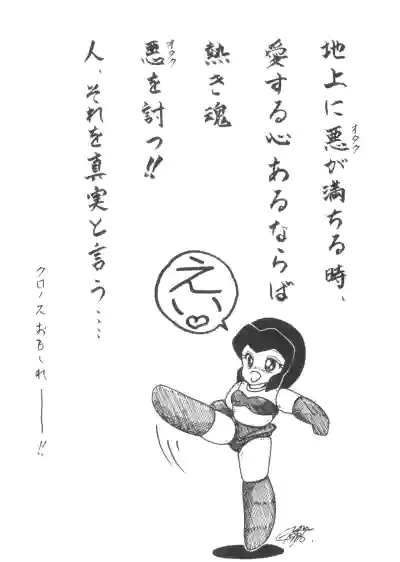 地上に悪が満ちる時、
オタク
愛する心あるならば
熱き魂
悪を討つ!!
オタク
人、それを真実と言う…
クロノスおもしれ――!!
えい♡